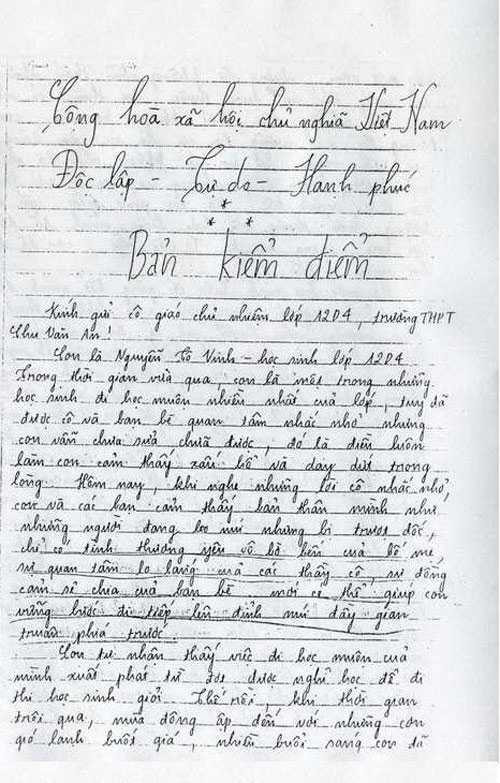 Cộng hoà xã hội chủ nghĩa Việt Nam
Độc lập - Tự do - Hạnh phúc
* * *
Bản kiểm điểm
Kính gửi cô giáo chủ nhiệm lớp 12D4, trường THPT
Chu Văn An!
Con là Nguyễn Tô Vinh - học sinh lớp 12D4
Trong thời gian vừa qua, con là một trong những
học sinh đi học muộn nhiều nhất của lớp, tuy đã
được cô và bạn bè quan tâm nhắc nhở nhưng
con vẫn chưa sửa chữa được, đó là điều luôn
làm con cảm thấy xấu hổ và day dứt trong
lòng. Hôm nay khi nghe những lời cô nhắc nhở,
con và các bạn cảm thấy bản thân mình như
những người đang leo núi nhưng bị trượt dốc,
chỉ có tình thương yêu vô bờ bến của bố mẹ,
sự quan tâm lo lắng của các thầy cô, sự đồng
cảm sẻ chia của bạn bè mới có thể giúp con
vững bước đi tiếp lên đỉnh núi đầy gian
truân phía trước.
Con tự nhận thấy việc đi học muộn của
mình xuất phát từ đợt được nghỉ học để đi
thi học sinh giỏi. Thế rồi, khi thời gian
trôi qua, mùa đông ập đến với những cơn
gió lạnh buốt giá, nhiều buổi sáng con đã